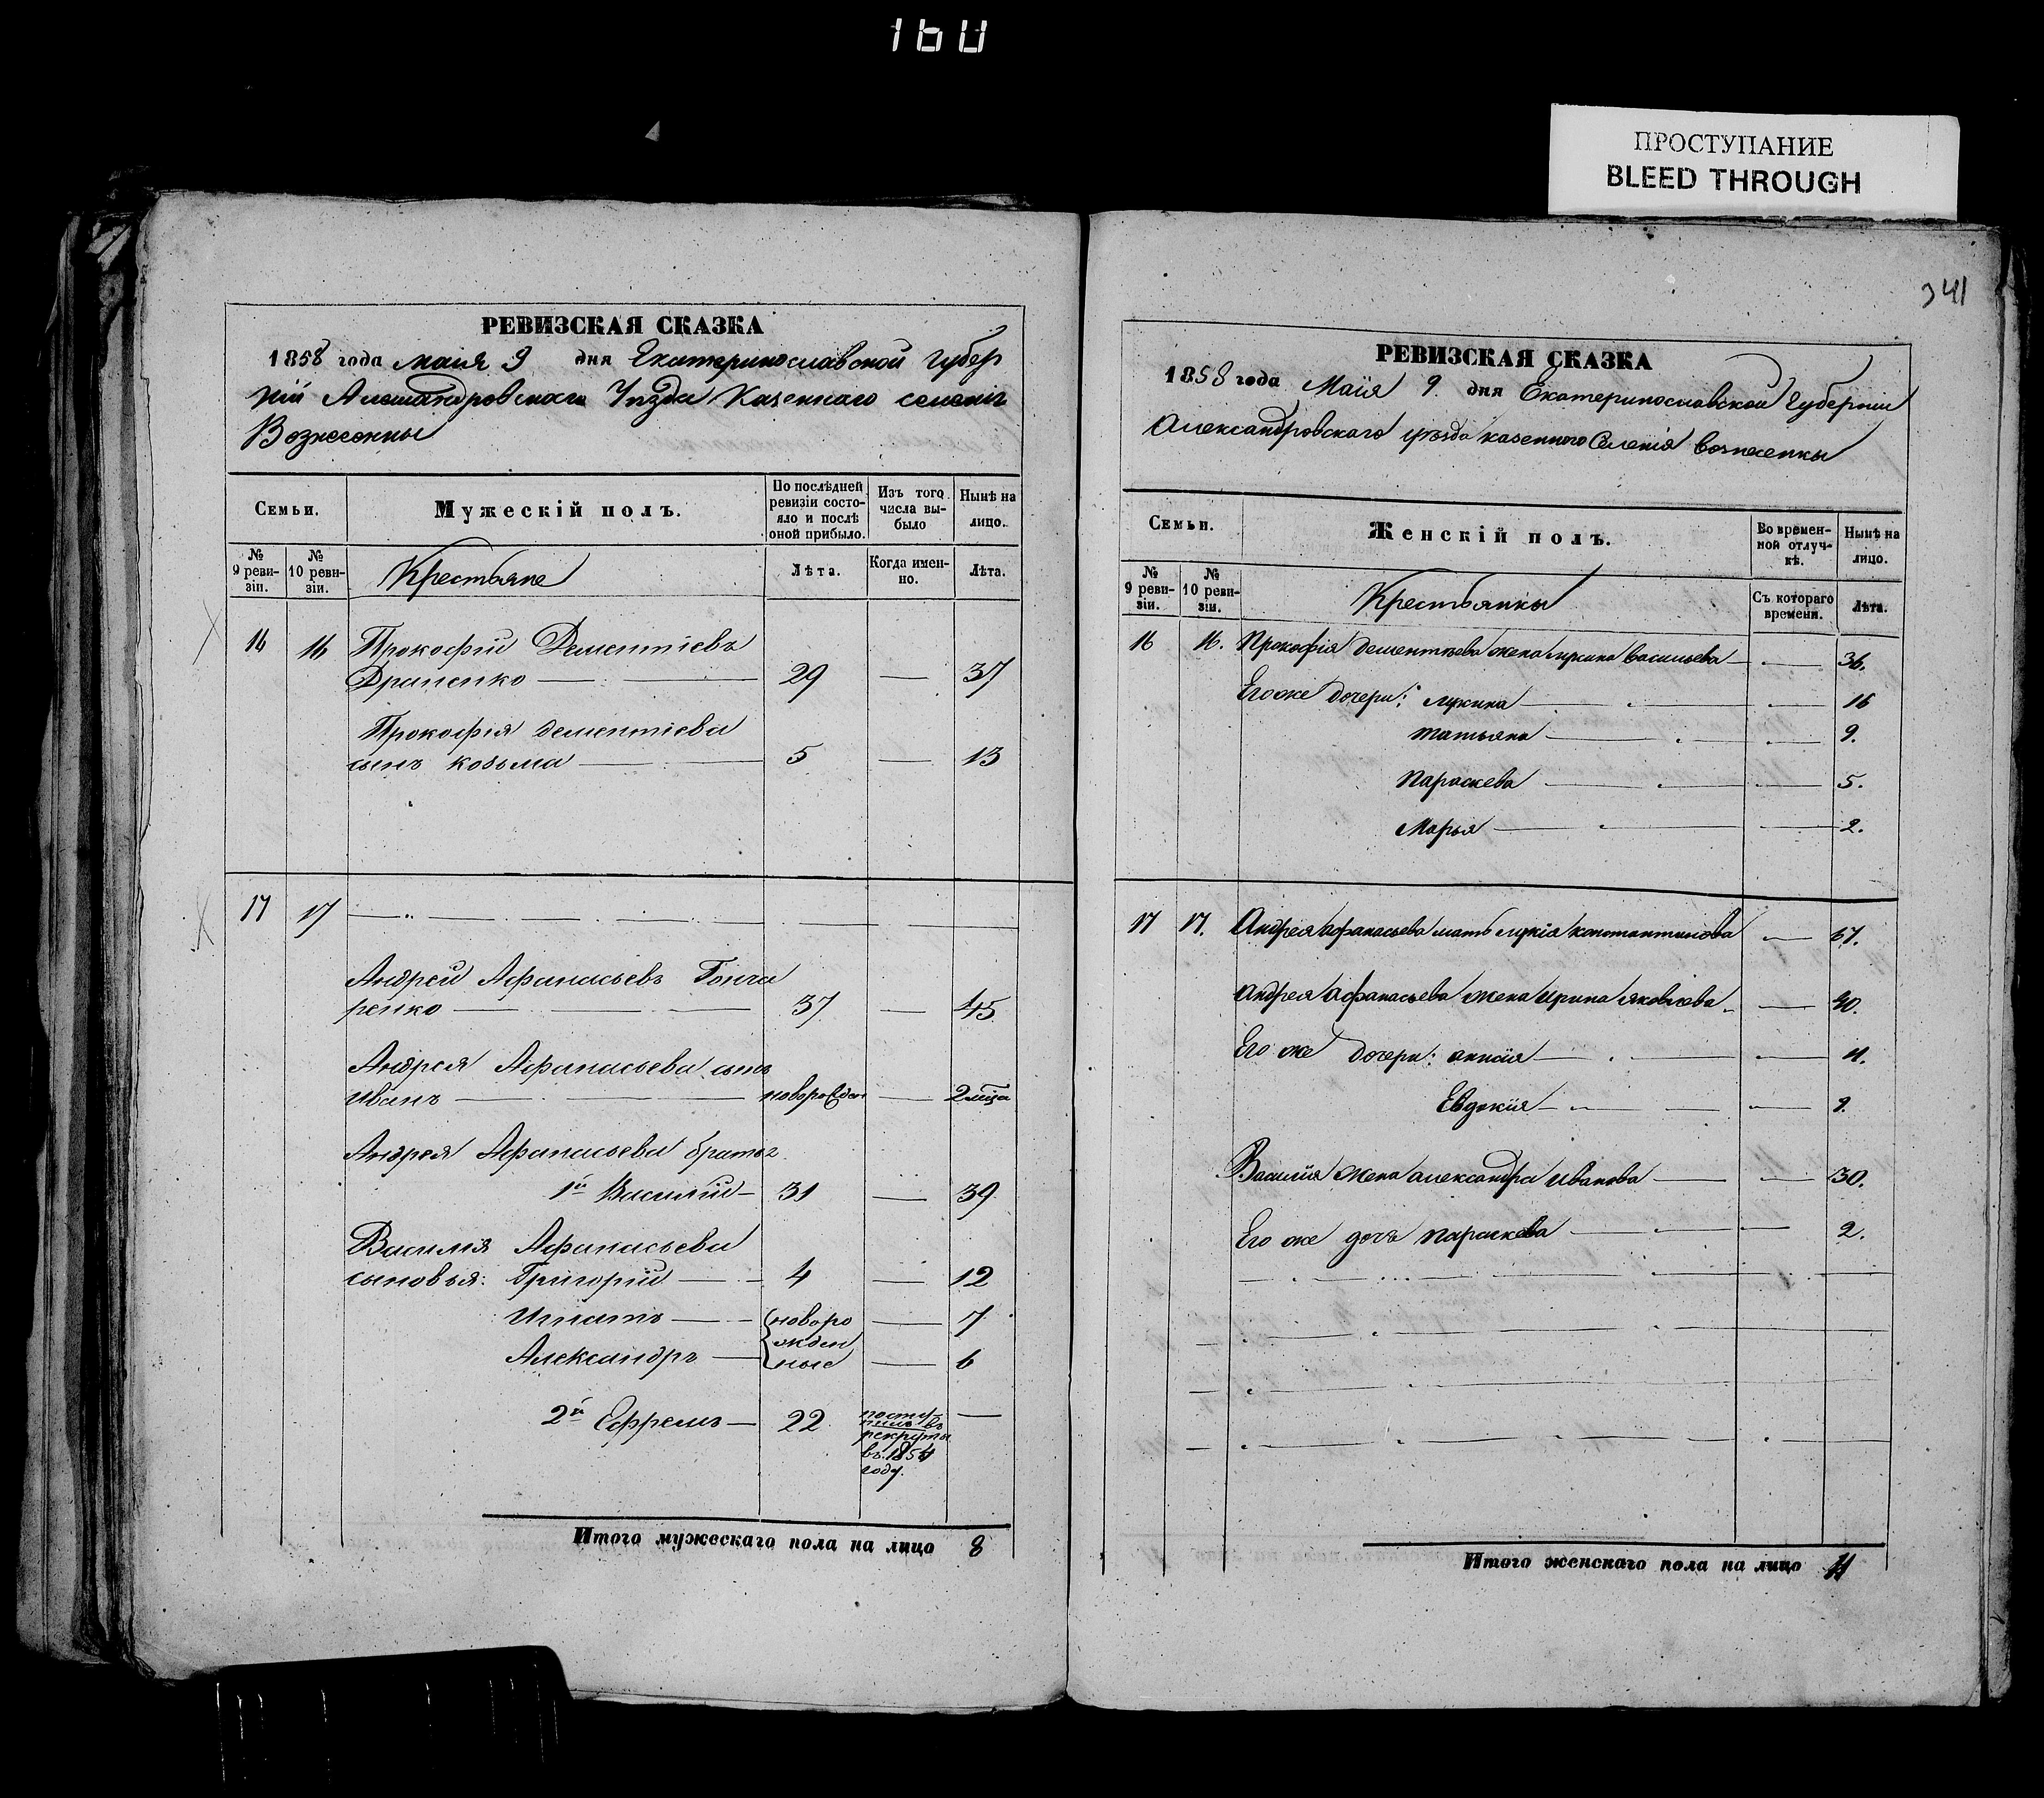 160
ПРОСТУПАНИЕ
BLEED THROUGH
341
РЕВИЗСКАЯ СКАЗКА
1858 года маія 9 дня Екатеринославской Губер
ніи Александровскаго Уѣзда Казеннаго селенія
Вознесенки
Семьи.
Мужескій полъ.
По послѣдней ревизіи состояло и послѣ оной прибыло.
Изъ того числа выбыло
Нынѣ на лицо.
№ 9 ревизіи.
№ 10 ревизіи.
Крестьяне
Лѣта.
Когда именно.
Лѣта.
16 16 Прокофій Дементіевъ
Драненко — 29 — 37
Прокофія Дементіева
сынъ Козьма — 5 — 13
17 17 — — —
Андрей Афанасьевъ Гонча
ренко — 37 — 45
Андрея Афанасьева сынъ
Иванъ — новорожден — 2 мѣсца
Андрея Афанасьева братья
1й Василій — 31 — 39
Василія Афанасьева
сыновья: Григорій — 4 — 12
Игнатъ — новоро — 7
жден
Александръ — ные — 6
2й Ефремъ — 22 посту —
пилъ въ
рекруты
въ 1854
году.
Итого мужескаго пола на лицо 8
РЕВИЗСКАЯ СКАЗКА
1858 года Маія 9. дня Екатеринославской Губерніи
Александровскаго уѣзда казенного Селенія Вознесенки
Семьи.
Женскій полъ.
Во временной отлучкѣ.
Нынѣ на лицо.
№ 9 ревизіи.
№ 10 ревизіи.
Крестьянки
Съ котораго времени.
Лѣта.
16 16. Прокофія Дементьева жена Васильева — 36.
Его же дочери: — 16
Татьяна — 9.
Параскева — 5.
Марья — 2.
17 17. Андрея Афанасьева мать Лукія Константинова — 67.
Андрея Афанасьева жена Ирина Яковлева — 40.
Его же дочери: Анисія — 11.
Евдокія — 9.
Василія жена Александра Иванова — 30.
Его же дочь Параскева — 2.
Итого женскаго пола на лицо 11